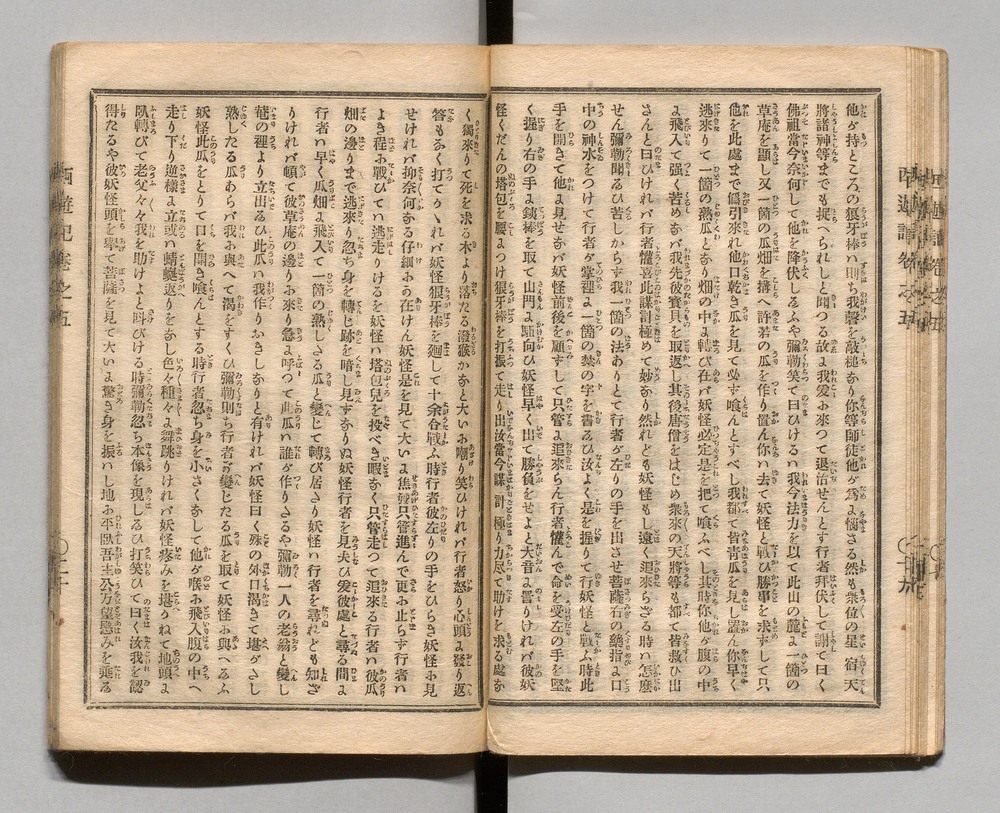 他が持ところの狼牙棒ハ則ち我磬を敲槌なり你等師徒他が爲に惱さる然も衆位の星宿天
將諸神等までも捉へられしと聞つる故に我爰お來つて退治せんとす行者拜伏して謝て曰く
佛祖當今奈何して他を降伏しるふや彌勒笑て曰ひけるハ我今法力を以て此山の麓に一箇の
草庵を顯し又一箇の瓜畑を搆へ許若の瓜を作り置ん你ハ去て妖怪と戰ひ勝事を求ずして只
他を此處まで僞引來れ他口乾き瓜を見て必ず喰んとすべし我都て皆靑瓜を見し置ん你早く
逃來りて一箇の熟瓜となり畑の中に轉び在バ妖怪必定是を把て喰ふべし其時你他が腹の中
に飛入て强く苦めなバ我先彼寳貝を取返し其後唐僧をはじめ衆來の天將等も都て皆救ひ出
さんと曰ひけれバ行者懽喜此謀計極めて妙なり然れども妖怪もし遠く追來らざる時ハ怎麽
せん彌勒聞る苦しからず我一箇の法ありとて行者が左りの手を出させ菩薩右の藥指に口
中の神水をつけて行者が掌裡に一箇の禁の字を書るひ汝よく是を握りて行妖怪と戰ふ時此
手を開きて他に見せなバ妖怪前後を顧ずして只管に追來らん行者懽んで命を受左の手を堅
く握り右の手に鉄棒を取て山門に驅向ひ妖怪早く出て勝負をせよと大音に詈りけれバ彼妖
怪くだんの塔包を腰につけ狼牙棒を打振て走り出汝當今謀計極り力尽て助けを求る處な
く獨來りて死を求る木より落たる潑猴かなと大いお嘲り笑ひけれバ行者怒り心頭に發り返
答もなく打てかゝれバ妖怪狼牙棒を廻して十余合戰ふ時行者彼左りの手をひらき妖怪お見
せけれバ抑奈何なる仔細お在けん妖怪是を見て大いに焦燥只管進んで更お止らず行者ハ
よき程お戰ひてハ逃走りけるを妖怪ハ塔包兒を投べき暇なく只管走つて追來る行者ハ彼瓜
畑の邊りまで逃來り忽ち身を轉じ跡を暗し見ずなりぬ妖怪行者を見失ひ爰彼處と尋る間に
行者ハ早く瓜畑に飛入て一箇の熟しさる瓜と變じて轉び居さり妖怪ハ行者を尋れども知ざ
りけれバ頓て彼草庵の邊りお來り急に呼つて此瓜ハ誰が作りさるや彌勒一人の老翁と變し
菴の裡より立出るひ此瓜ハ我作りおきしなりと有けれバ妖怪曰く殊の外口渴きて堪がさし
熟したる瓜あらバ我お與へて渴をすくひ彌勒則ち行者が變じたる瓜を取て妖怪お與へるふ
妖怪此瓜をとりて口を開き喰んとする時行者忽ち身を小さくなして他が喉お飛入腹の中へ
走り下り逆樣に立或ハ蜻蜒返りをなし色々種々に舞跳りけれバ妖怪疼みを堪りねて地頭に
臥轉びて老父々々我を助けよと呌びける時彌勒忽ち本像を現しるひ打笑ひて曰く汝我を認
得たるや彼妖怪頭を擧て菩薩を見て大いに驚き身を振ハし地お平臥吾主公万望慈みを垂る
西遊記卷之五